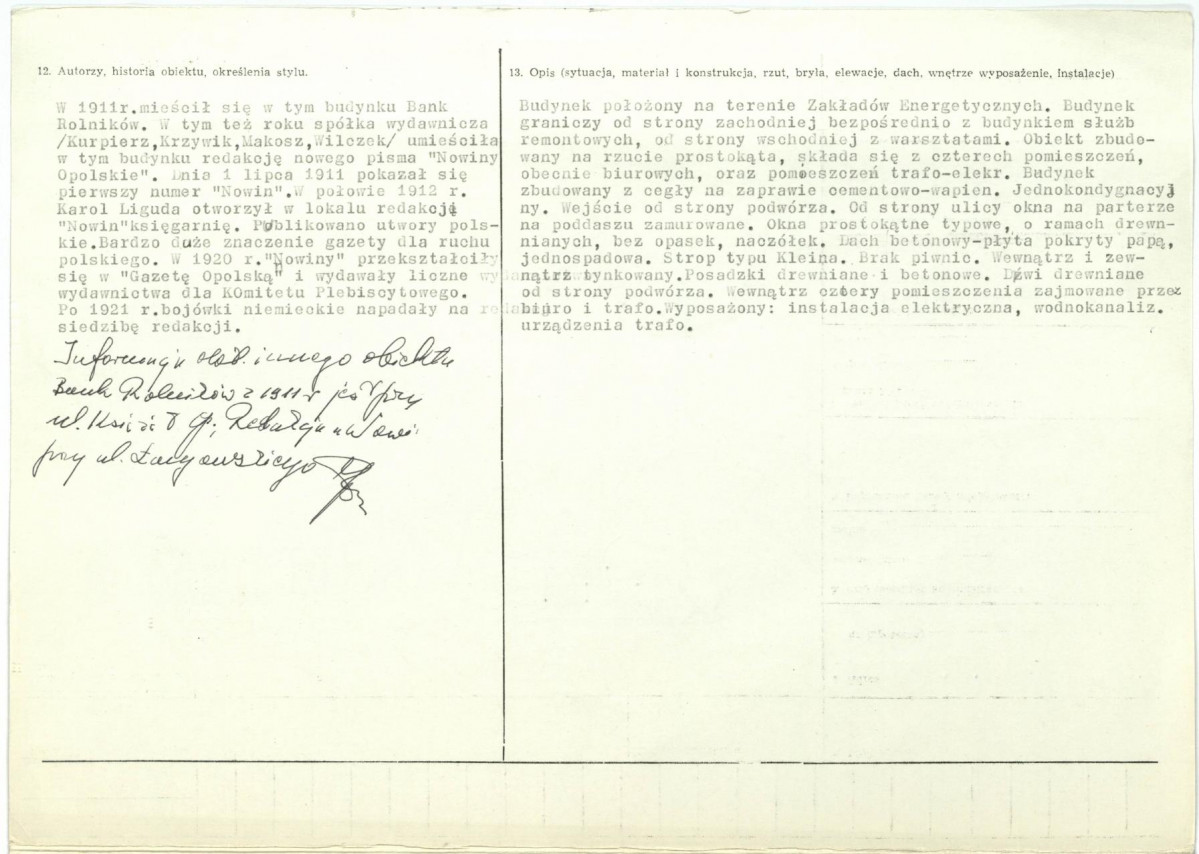 12. Autorzy, historia obiektu, określenia stylu.
W 1911r.mieścił się w tym budynku Bank
Rolników. W tym też roku spółka wydawnicza
/Kurpierz,Krzywik,Makosz,Wilczek/ umieściła
w tym budynku redakcję nowego pisma "Nowiny
Opolskie". Dnia 1 lipca 1911 pokazał się
pierwszy numer "Nowin".W połowie 1912 r.
Karol Liguda otworzył w lokalu redakcji
"Nowin"księgarnię. Publikowano utwory pols-
kie.Bardzo duże znaczenie gazety dla ruchu
polskiego. W 1920 r."Nowiny" przekształciły
się w "Gazetę Opolską" i wydawały liczne
wydawnictwa dla KOmitetu Plebiscytowego.
Po 1921 r.bojówki niemieckie napadały na
siedzibę redakcji.
innego obiektu
Bank Rolników z 1911 r przy
ul.
przy ul.
13. Opis (sytuacja, materiał i konstrukcja, rzut, bryła, elewacje, dach, wnętrze wyposażenie, instalacje)
Budynek położony na terenie Zakładów Energetycznych. Budynek
graniczy od strony zachodniej bezpośrednio z budynkiem służb
remontowych, od strony wschodniej z warsztatami. Obiekt zbudo-
wany na rzucie prostokąta, składa się z czterech pomieszczeń,
obecnie biurowych, oraz pomieszczeń trafo-elekr. Budynek
zbudowany z cegły na zaprawie cementowo-wapien. Jednokondygnacyj
ny. Wejście od strony podwórza. Od strony ulicy okna na parterze
na poddaszu zamurowane. Okna prostokątne typowe, o ramach drewn-
nianych, bez opasek, naczółek. Dach betonowy-płyta pokryty papą,
jednospadowa. Strop typu Kleina. Brak piwnic. Wewnątrz i zew-
nątrz tynkowany.Posadzki drewniane i betonowe. Dźwi drewniane
od strony podwórza. Wewnątrz cztery pomieszczenia zajmowane przez
biuro i trafo.Wyposażony: instalacja elektryczna, wodnokanaliz.
urządzenia trafo.